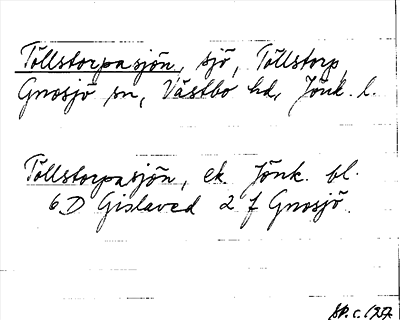 Töllstorpasjön, sjö, Töllstorp,
Gnosjö sn, Västbo hd, Jönk. l.
Töllstorpasjön, ek. Jönk. bl.
6D Gislaved 2 f Gnosjö.